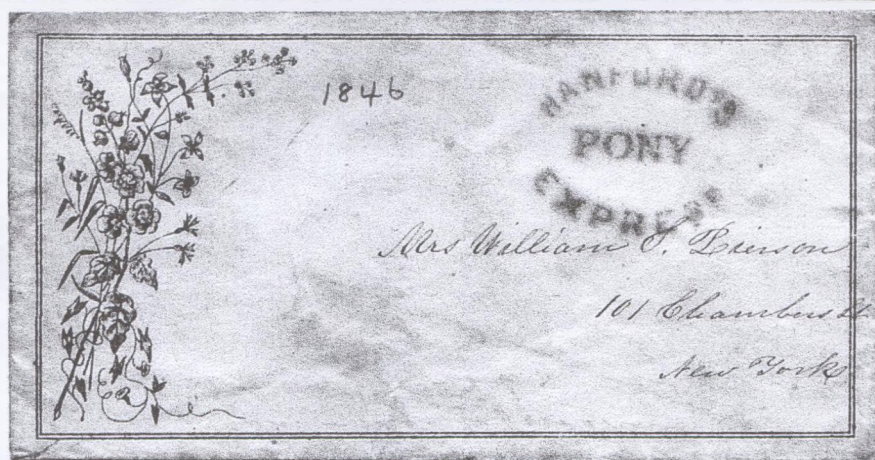 1846
HANFORD'S
PONY
EXPRESS
Mrs William S. Pierson
101 Chambers St
New York